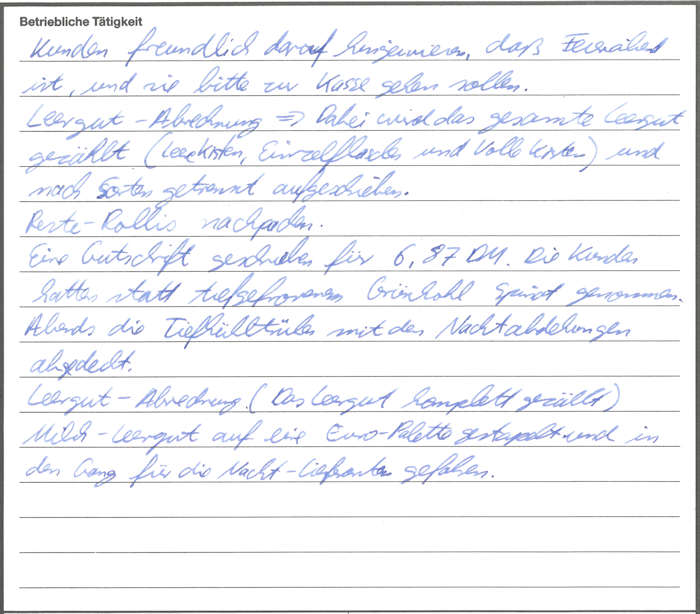 Betriebliche Tätigkeit
Kunden freundlich darauf hingewiesen, daß Feierabend
ist, und sie bitte zur Kasse gehen sollen.
Leergut-Abrechnung => Dabei wird das gesamte Leergut
gezählt (Leerkisten, Einzelflaschen und Volle Kisten) und
nach Sorten getrennt aufgeschrieben.
Reste-Rollis nachpacken.
Eine Gutschrift geschrieben für 6,87 DM. Die Kunden
hatten statt tiefgefrorenem Grünkohl Spinat genommen.
Abends die Tiefkühltruhen mit den Nachtabdeckungen
abgedeckt.
Leergut-Abrechnung. (Das Leergut komplett gezählt)
Milch-Leergut auf eine Euro-Palette gestapelt und in
den Gang für die Nacht-Lieferanten gefahren.